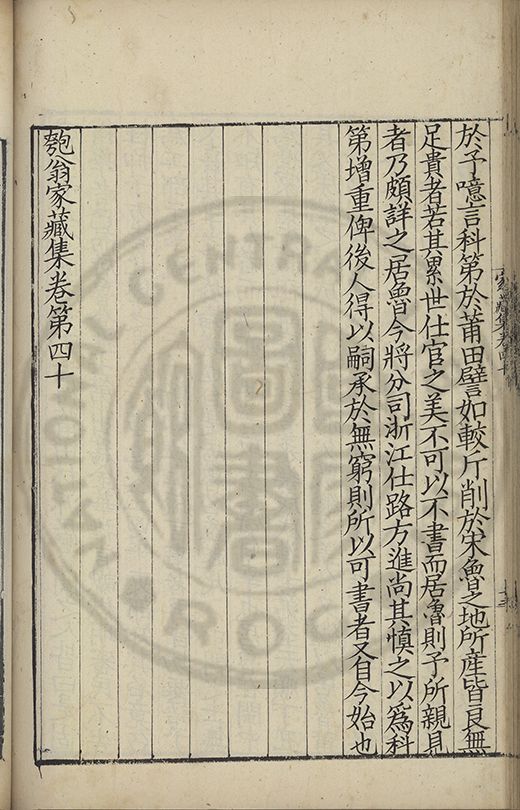 於予噫言科第於莆田譬如較斤削於宋魯之地所産皆良無
足貴者若其累世仕官之美不可以不書而居魯則予所親見
者乃頗詳之居魯今將分司浙江仕路方進尚其慎之以爲科
第增重俾後人得以嗣承於無窮則所以可書者又自今始也
匏翁家藏集卷第四十